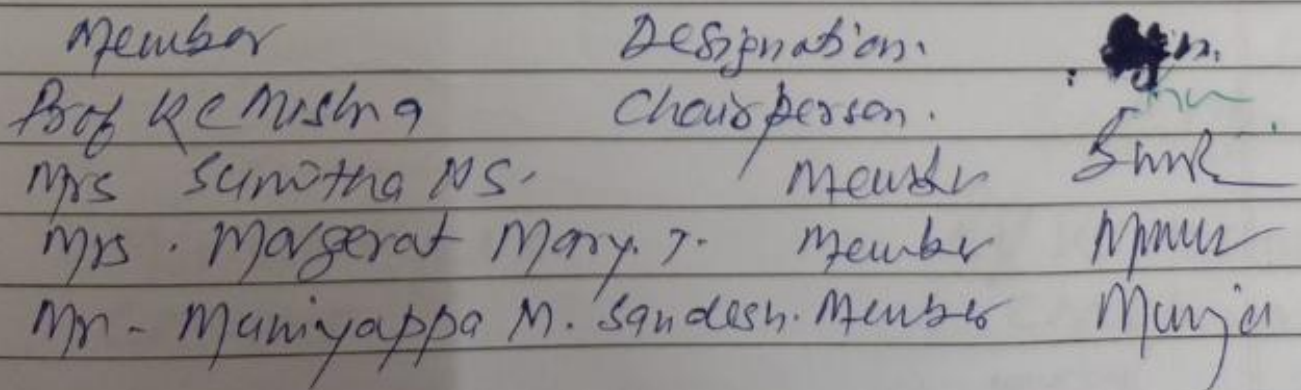 Member Designation. Sign.
Prof K C Mishra Chairperson.
Mrs Sunitha N S. Member
Mrs. Margerat Mary. T. Member
Mr - Muniyappa M. Sandesh. Member